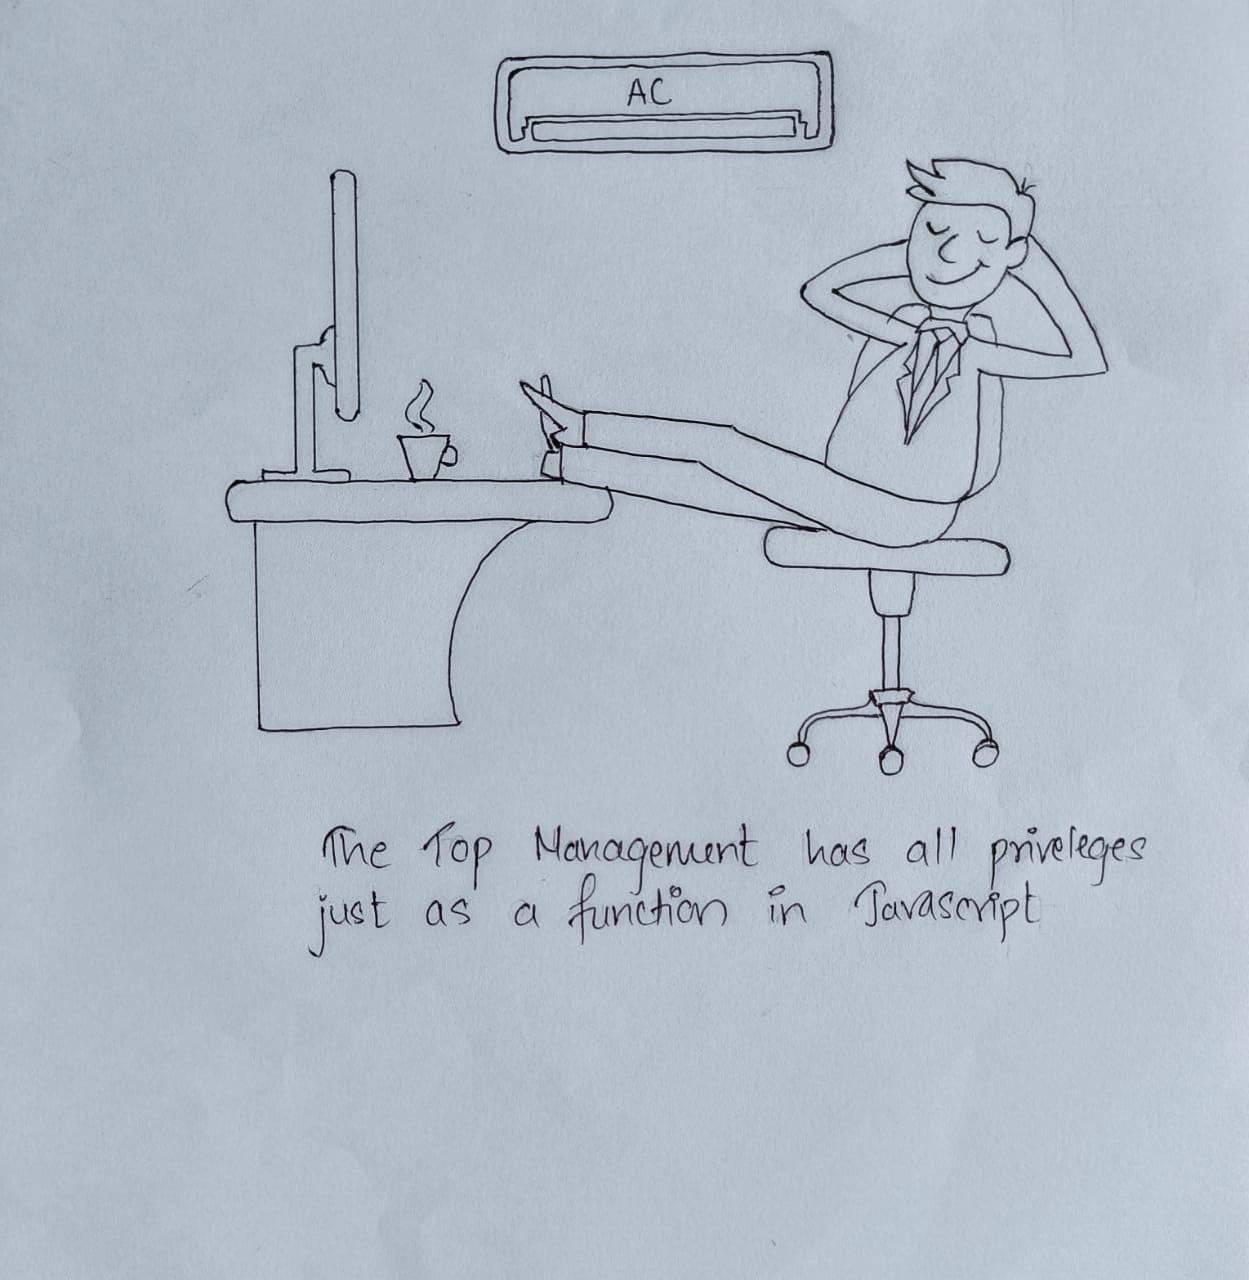 AC
The Top Management has all priveleges
just as a function in Javascript